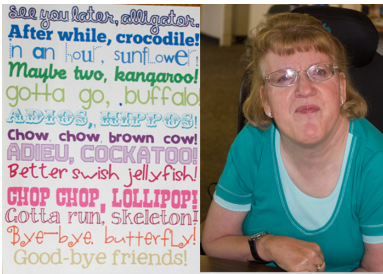 see you later, alligator.
After while, crocodile!
in an hour, sunflower
Maybe two, kangaroo!
gotta go, buffalo
ADIOS, HIPPOS!
Chow, chow, brown cow!
ADIEU, COCKATOO!
Better swish jellyfish!
CHOP CHOP, LOLLIPOP!
Gotta run, skeleton!
Bye-bye, butterfly!
Good-bye friends!